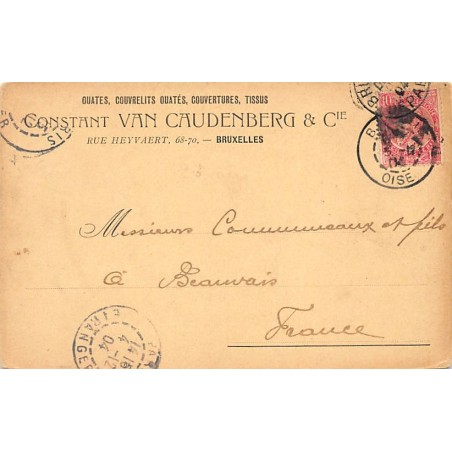 OUATES, COUVRELITS OUATÉS, COUVERTURES, TISSUS
CONSTANT VAN CAUDENBERG & CIE
RUE HEYVAERT, 68-70. — BRUXELLES
Messieurs Communeaux et fils
à Beauvais
France
OISE
ETRANGER
4 -12
04